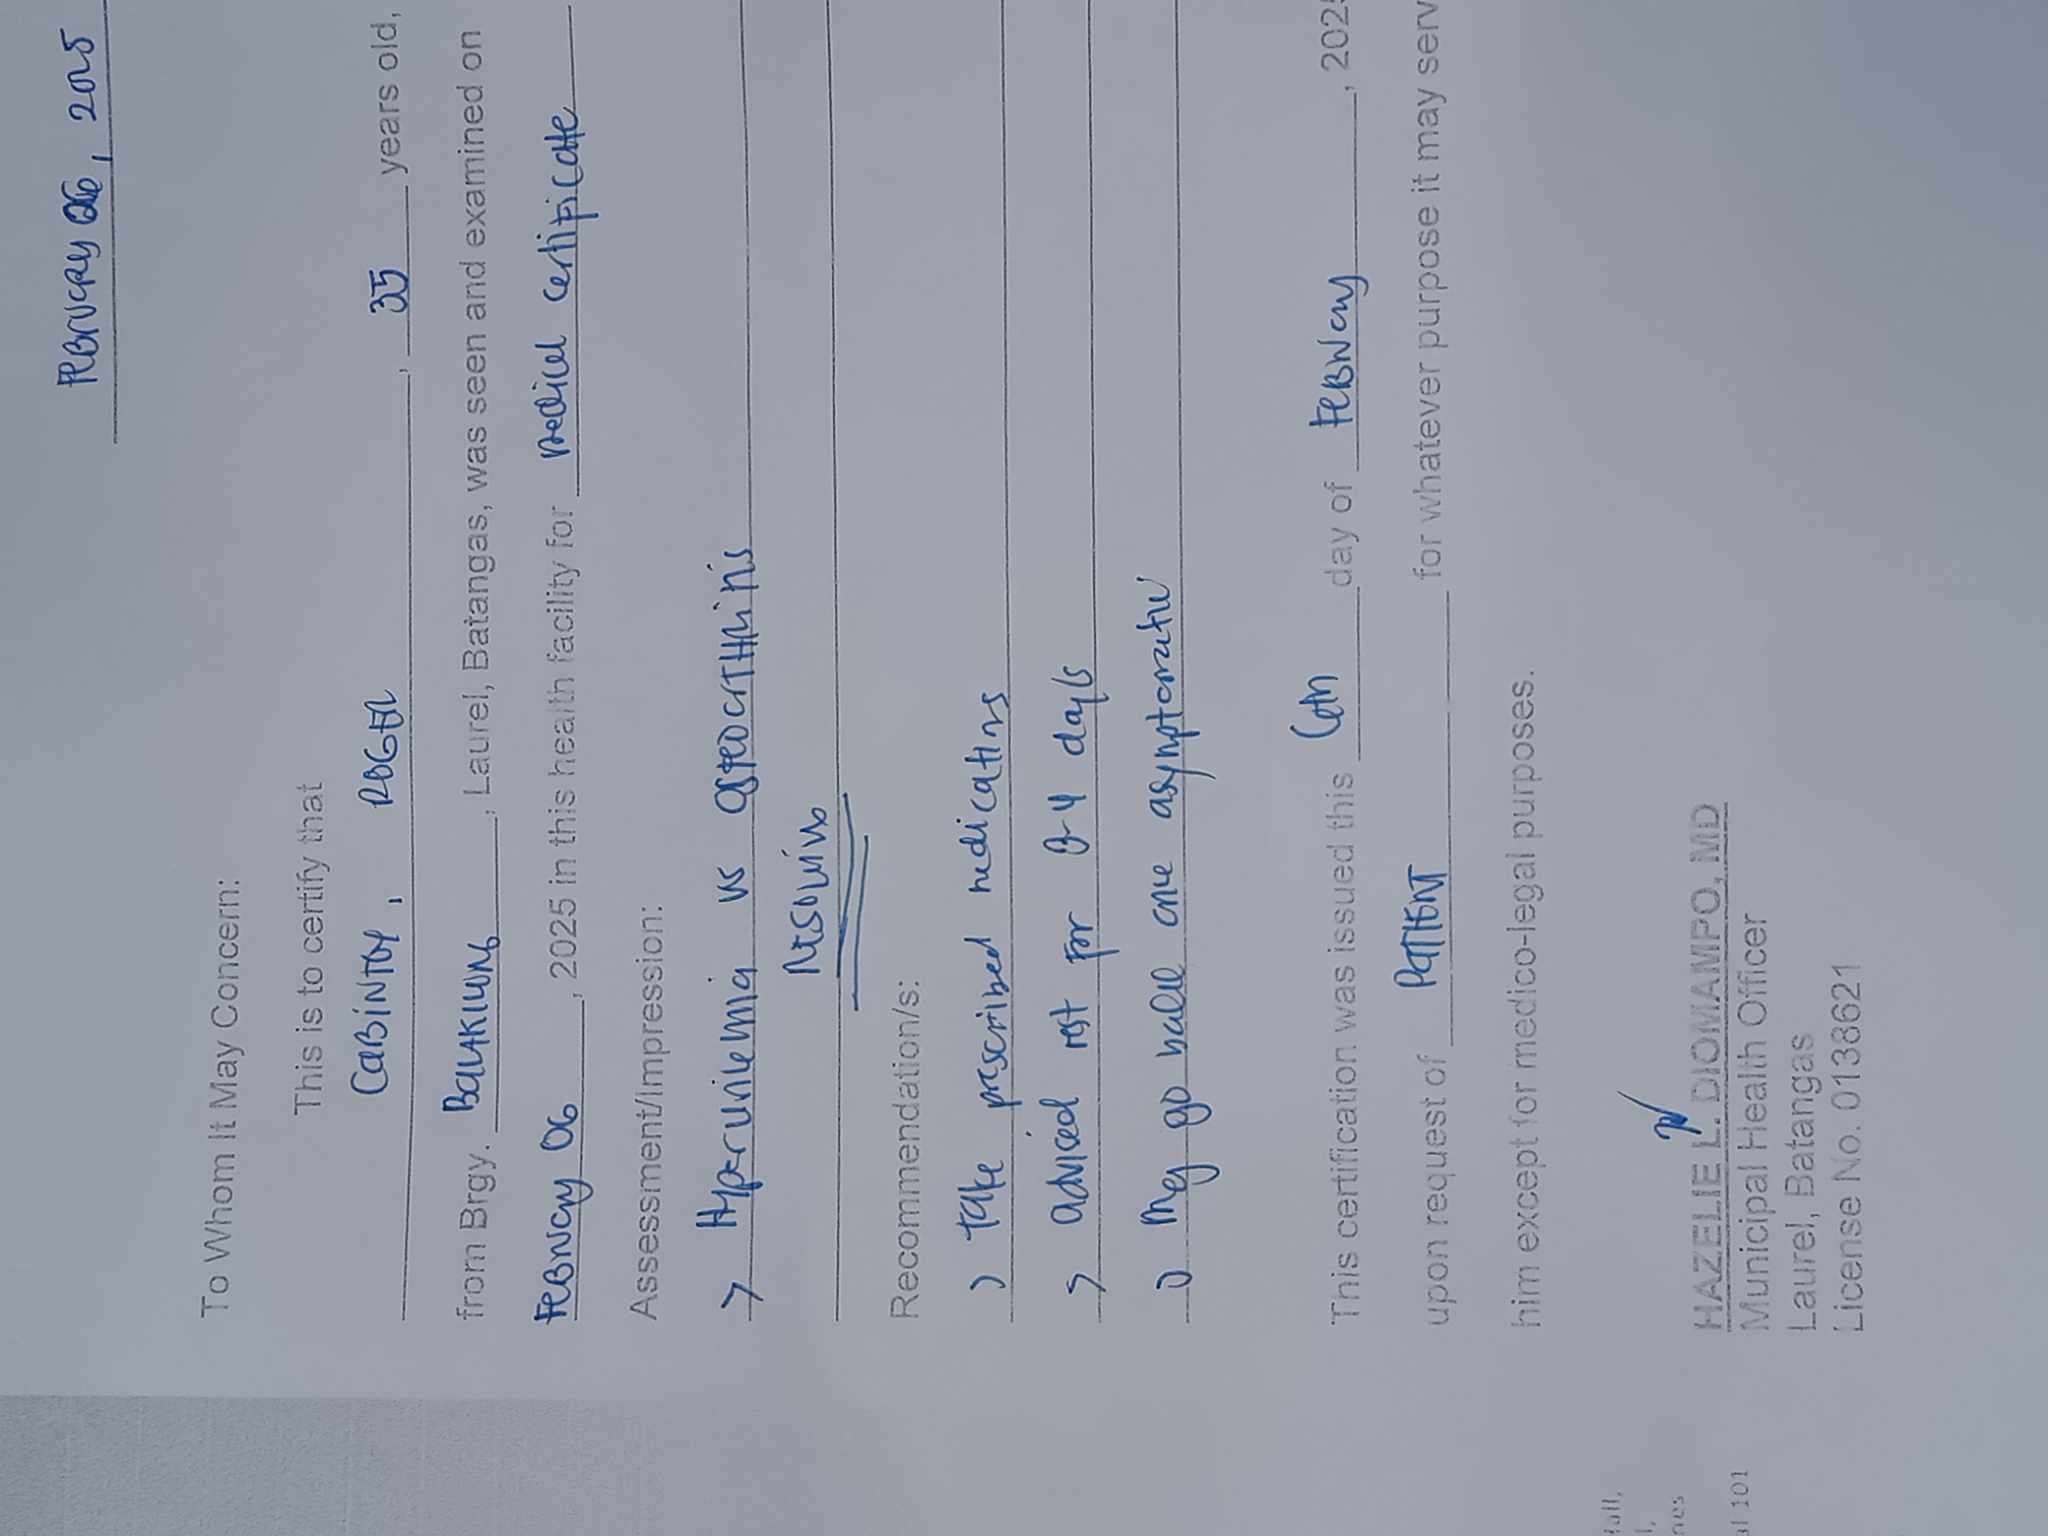 February 06, 2025
To Whom It May Concern:
This is to certify that
Cabintoy, Rogel, 35 years old,
from Brgy. Balakilong, Laurel, Batangas, was seen and examined on
February 06, 2025 in this health facility for Medical Certificate
Assessment/Impression:
> Hyperuricemia vs Osteoarthritis
resolving
Recommendation/s:
> take prescribed medications
> advised rest for 3-4 days
> May go back once asymptomatic
This certification was issued this 6th day of February, 202
upon request of PATIENT for whatever purpose it may serv
him except for medico-legal purposes.
HAZELIE L. DIOMAMPO, MD
Municipal Health Officer
Laurel, Batangas
License No. 0138621
101